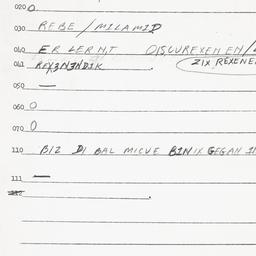 020 O
030 REBE / MILAMID
040 ER LERNT OISCUREXENEN /
041 REXENENDIK . ZIX REXENE
050 —
060 O
070 O
110 BIZ DI BAL MICVE BINIX GEGAN
111 —
112 .